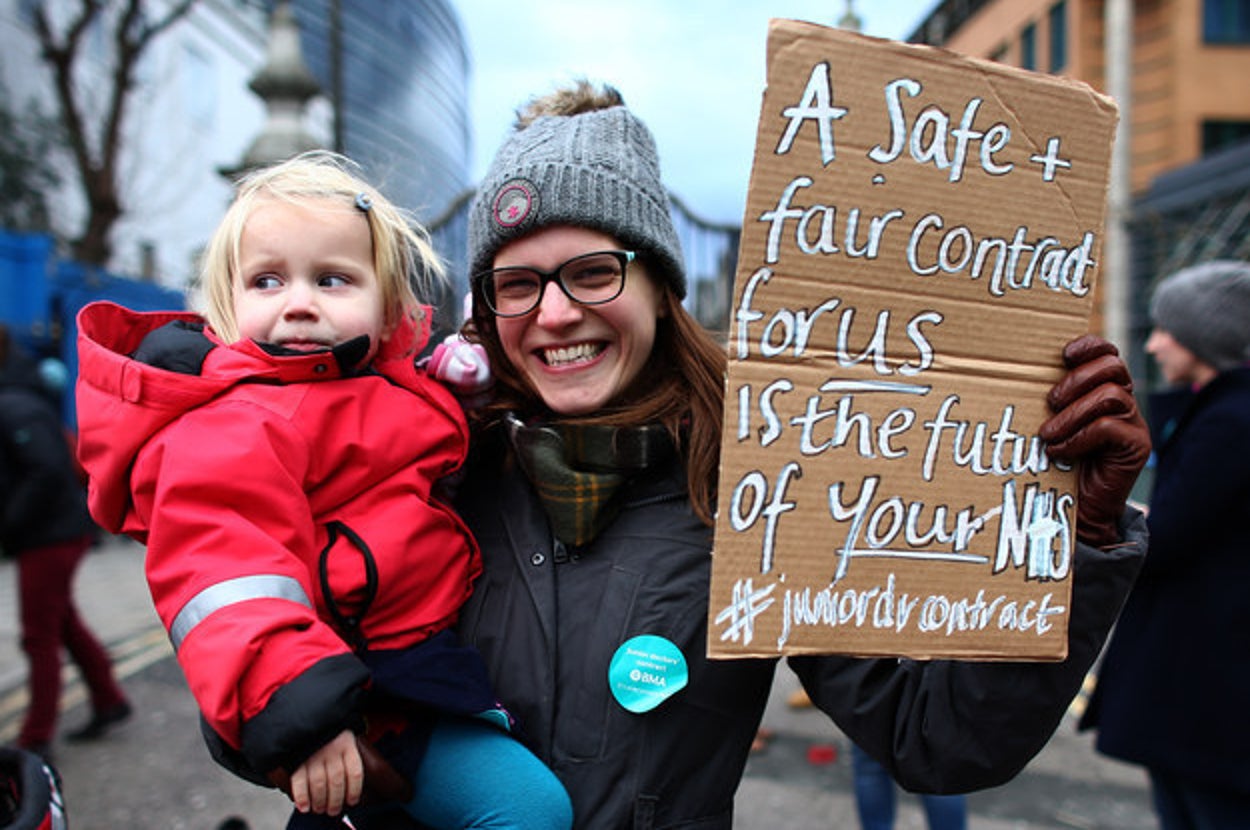 A Safe +
fair contract
for us
is the future
of your NHS
#juniordrcontract
junior doctors'
contract
BMA